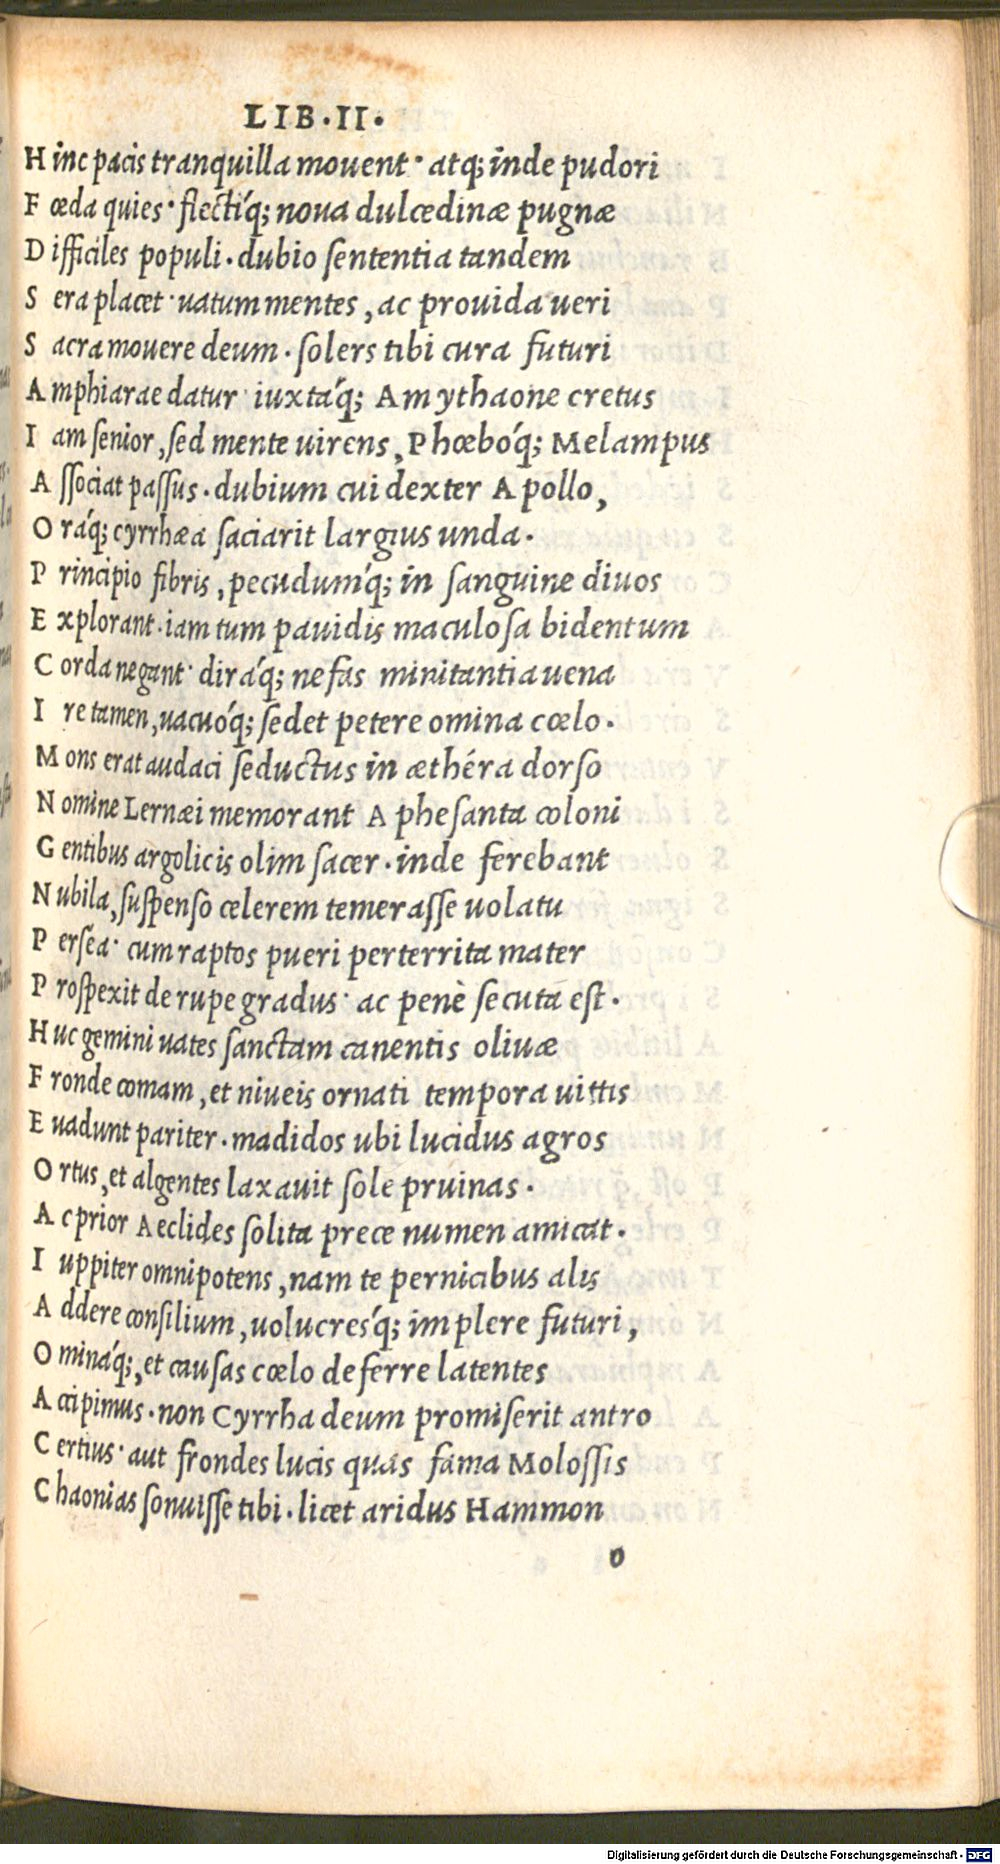 LIB·II·
H inc pacis tranquilla mouent· atq; inde pudori
F œda quies· flectíq; noua dulcedinæ pugnæ
D ifficiles populi·dubio sententia tandem
S era placet· uatum mentes, ac prouida ueri
S acra mouere deum· solers tibi cura futuri
A mphiarae datur iuxtáq; Amythaone cretus
I am senior, sed mente uirens, Phœbóq; Melampus
A ssociat passus· dubium cui dexter Apollo,
O ráq; cyrrhæa saciarit largius unda·
P rincipio fibris, pecudumq́; in sanguine diuos
E xplorant·iam tum pauidis maculosa bidentum
C orda negant· diráq; nefas minitantia uena
I re tamen, uacuóq; sedet petere omina cœlo·
M ons erat audaci seductus in æthéra dorso
N omine Lernæi memorant Aphesanta coloni
G entibus argolicis olim sacer·inde ferebant
N ubila, suspenso celerem temerasse uolatu
P ersea· cum raptos pueri perterrita mater
P rospexit de rupe gradus· ac penè secuta est·
H uc gemini uates sanctam canentis oliuæ
F ronde comam, et niueis ornati tempora uittis
E uadunt pariter·madidos ubi lucidus agros
O rtus, et algentes laxauit sole pruinas·
A c prior Aeclides solita prece numen amicat·
I uppiter omnipotens, nam te pernicibus alis
A ddere consilium, uolucresq́; implere futuri,
O mináq;, et causas cœlo deferre latentes
A ccipimus·non Cyrrha deum promiserit antro
C ertius· aut frondes lucis quas fama Molossis
C haonias sonuisse tibi·licet aridus Hammon
o
Digitalisierung gefördert durch die Deutsche Forschungsgemeinschaft - DFG